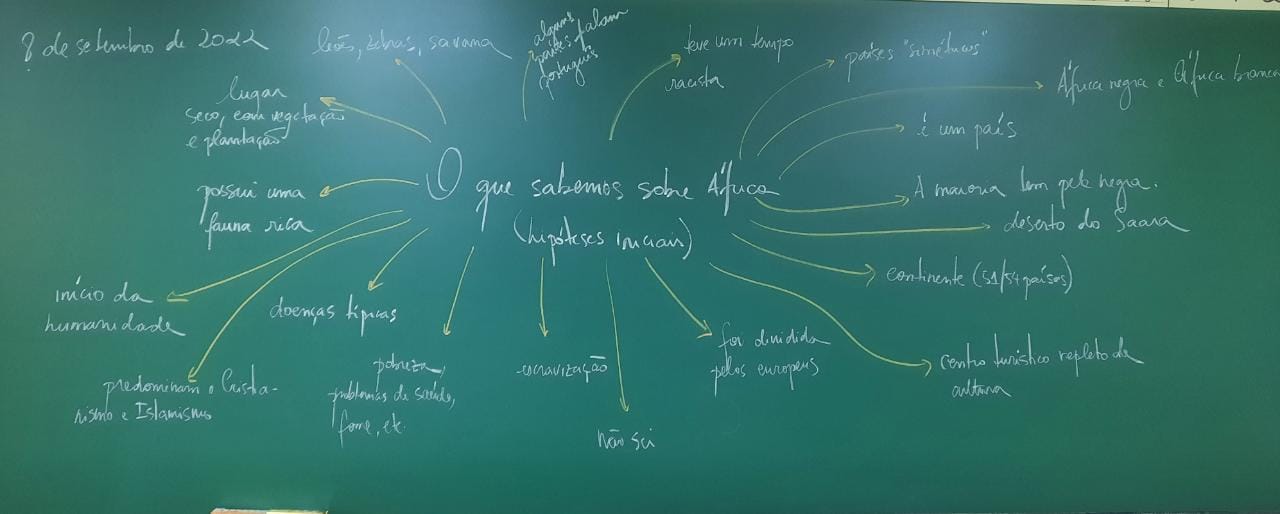 8 de setembro de 2022
leão, zebras, savana
alguns
países falam
português
teve um tempo
racista
países "simétricos"
África negra e África branca
lugar
seco, com vegetação
e plantação
é um país
O que sabemos sobre África
(hipóteses iniciais)
possui uma
fauna rica
A maioria tem pele negra.
deserto do Saara
continente (51/54 países)
início da
humanidade
doenças típicas
predominam o Cristia-
nismo e Islamismo
pobreza,
problemas de saúde,
fome, etc.
escravização
não sei
foi dividida
pelos europeus
centro turístico repleto de
cultura